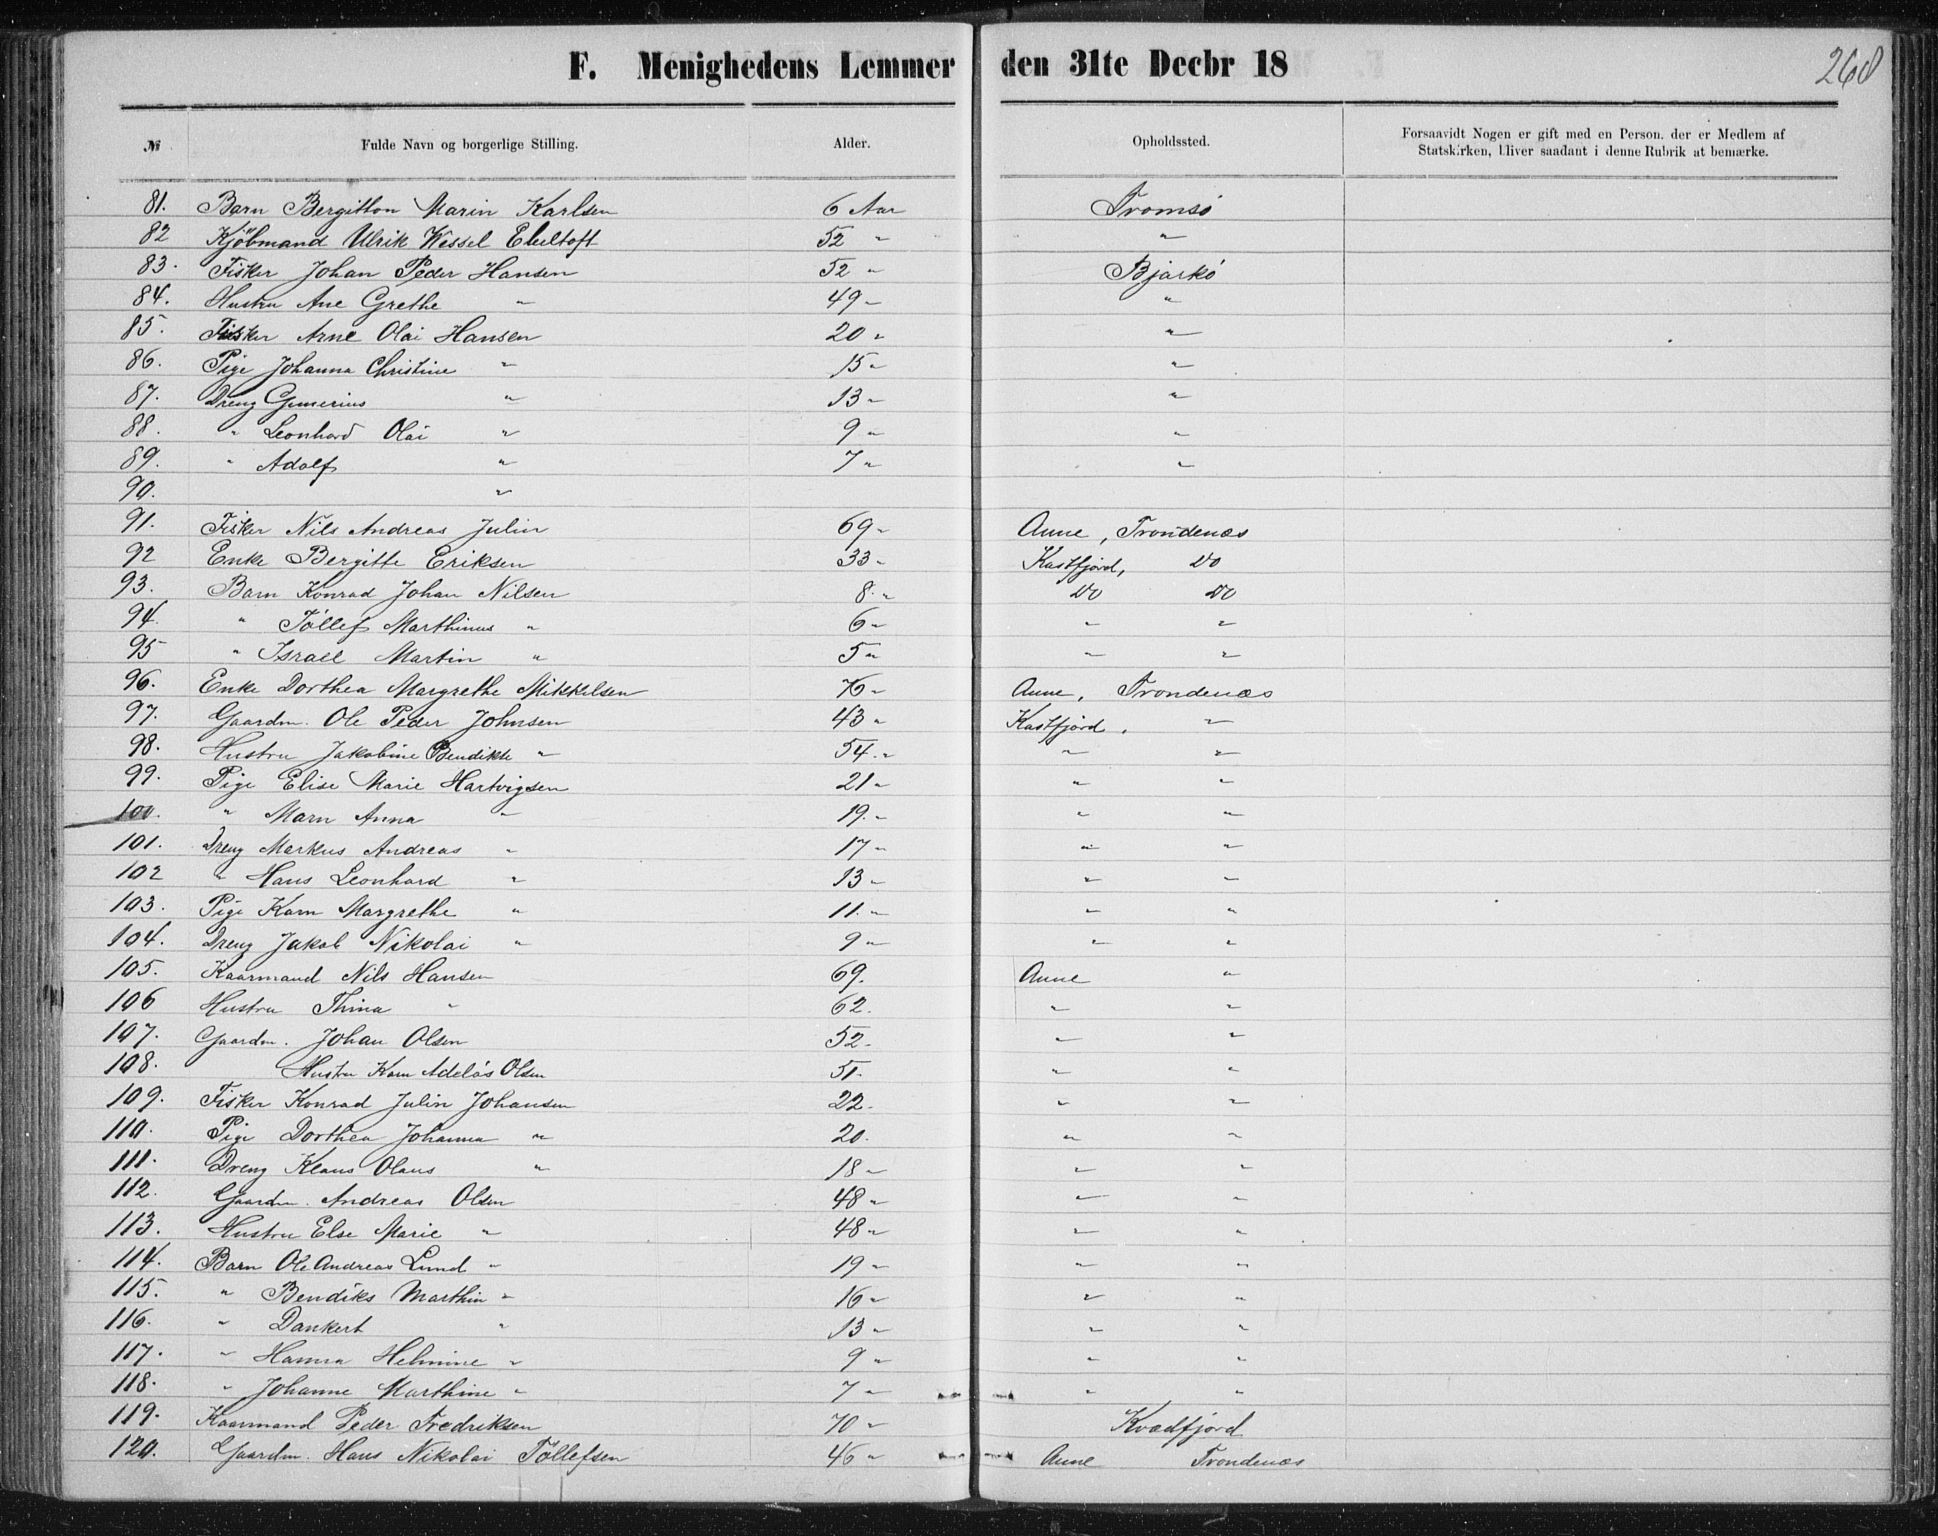 F. Menighedens Lemmer den 31te Decbr 18
268
№ Fulde Navn og borgerlige Stilling. Alder. Opholdssted. Forsaavidt Nogen er gift med en Person, der er Medlem af
Statskirken, bliver saadant i denne Rubrik at bemærke.
81. Barn Bergitton Marin Karlsen 6 Aar Tromsö
82 Kjöbmand Ulrik Wessel Ebeltoft 52 " "
83. Fisker Johan Peder Hansen 52 " Bjarkö
84. Hustru Ane Grethe " 49 " "
85. Fisker Arne Olai Hansen 20 " "
86. Pige Johanna Christine " 15 " "
87. Dreng Gunerius " 13 " "
88. " Leonhard Olai " 9 " "
89. " Adolf " 7 " "
90. "
91. Fisker Nils Andreas Julin 69 " Aune, Trondenæs
92 Enke Bergitte Eriksen 33 " Kastfjord, Do
93. Barn Konrad Johan Nilsen 8. " Do Do
94. " Töllef Marthinus " 6 " " "
95 " Israel Martin " 5 " " "
96. Enke Dorthea Margrethe Mikkelsen 76 " Aune, Trondenæs
97. Gaardm. Ole Peder Johnsen 43 " Kastfjord, "
98. Hustru Jakobine Bendikte " 54. " " "
99. Pige Elise Marie Hartvigsen 21 " " "
100. " Marn Anna " 19. " " "
101. Dreng Markus Andreas " 17 " " "
102 " Hans Leonhard " 13 " " "
103. Pige Karn Margrethe " 11. " " "
104. Dreng Jakob Nikolai " 9 " " "
105. Kaarmand Nils Hansen 69. Aune "
106 Hustru Thina " 62. " "
107. Gaardm. Johan Olsen 52. " "
108. Hustru Karn Adelös Olsen 51. " "
109. Fisker Konrad Julin Johansen 22. " "
110. Pige Dorthea Johanna " 20. " "
111. Dreng Klaus Olaus " 18 " " "
112. Gaardm. Andreas Olsen 48 " " "
113. Hustru Else Marie " 48 " " "
114. Barn Ole Andreas Lund " 19 " " "
115. " Bendiks Marthin " 16 " " "
116. " Dankert " 13 " " "
117. " Hanna Helmine " 9 " " "
118. " Johanne Marthine " 7 " " "
119. Kaarmand Peder Fredriksen 70 " Kvædfjord
120. Gaardm. Hans Nikolai Töllefsen 46 " Aune Trondenæs